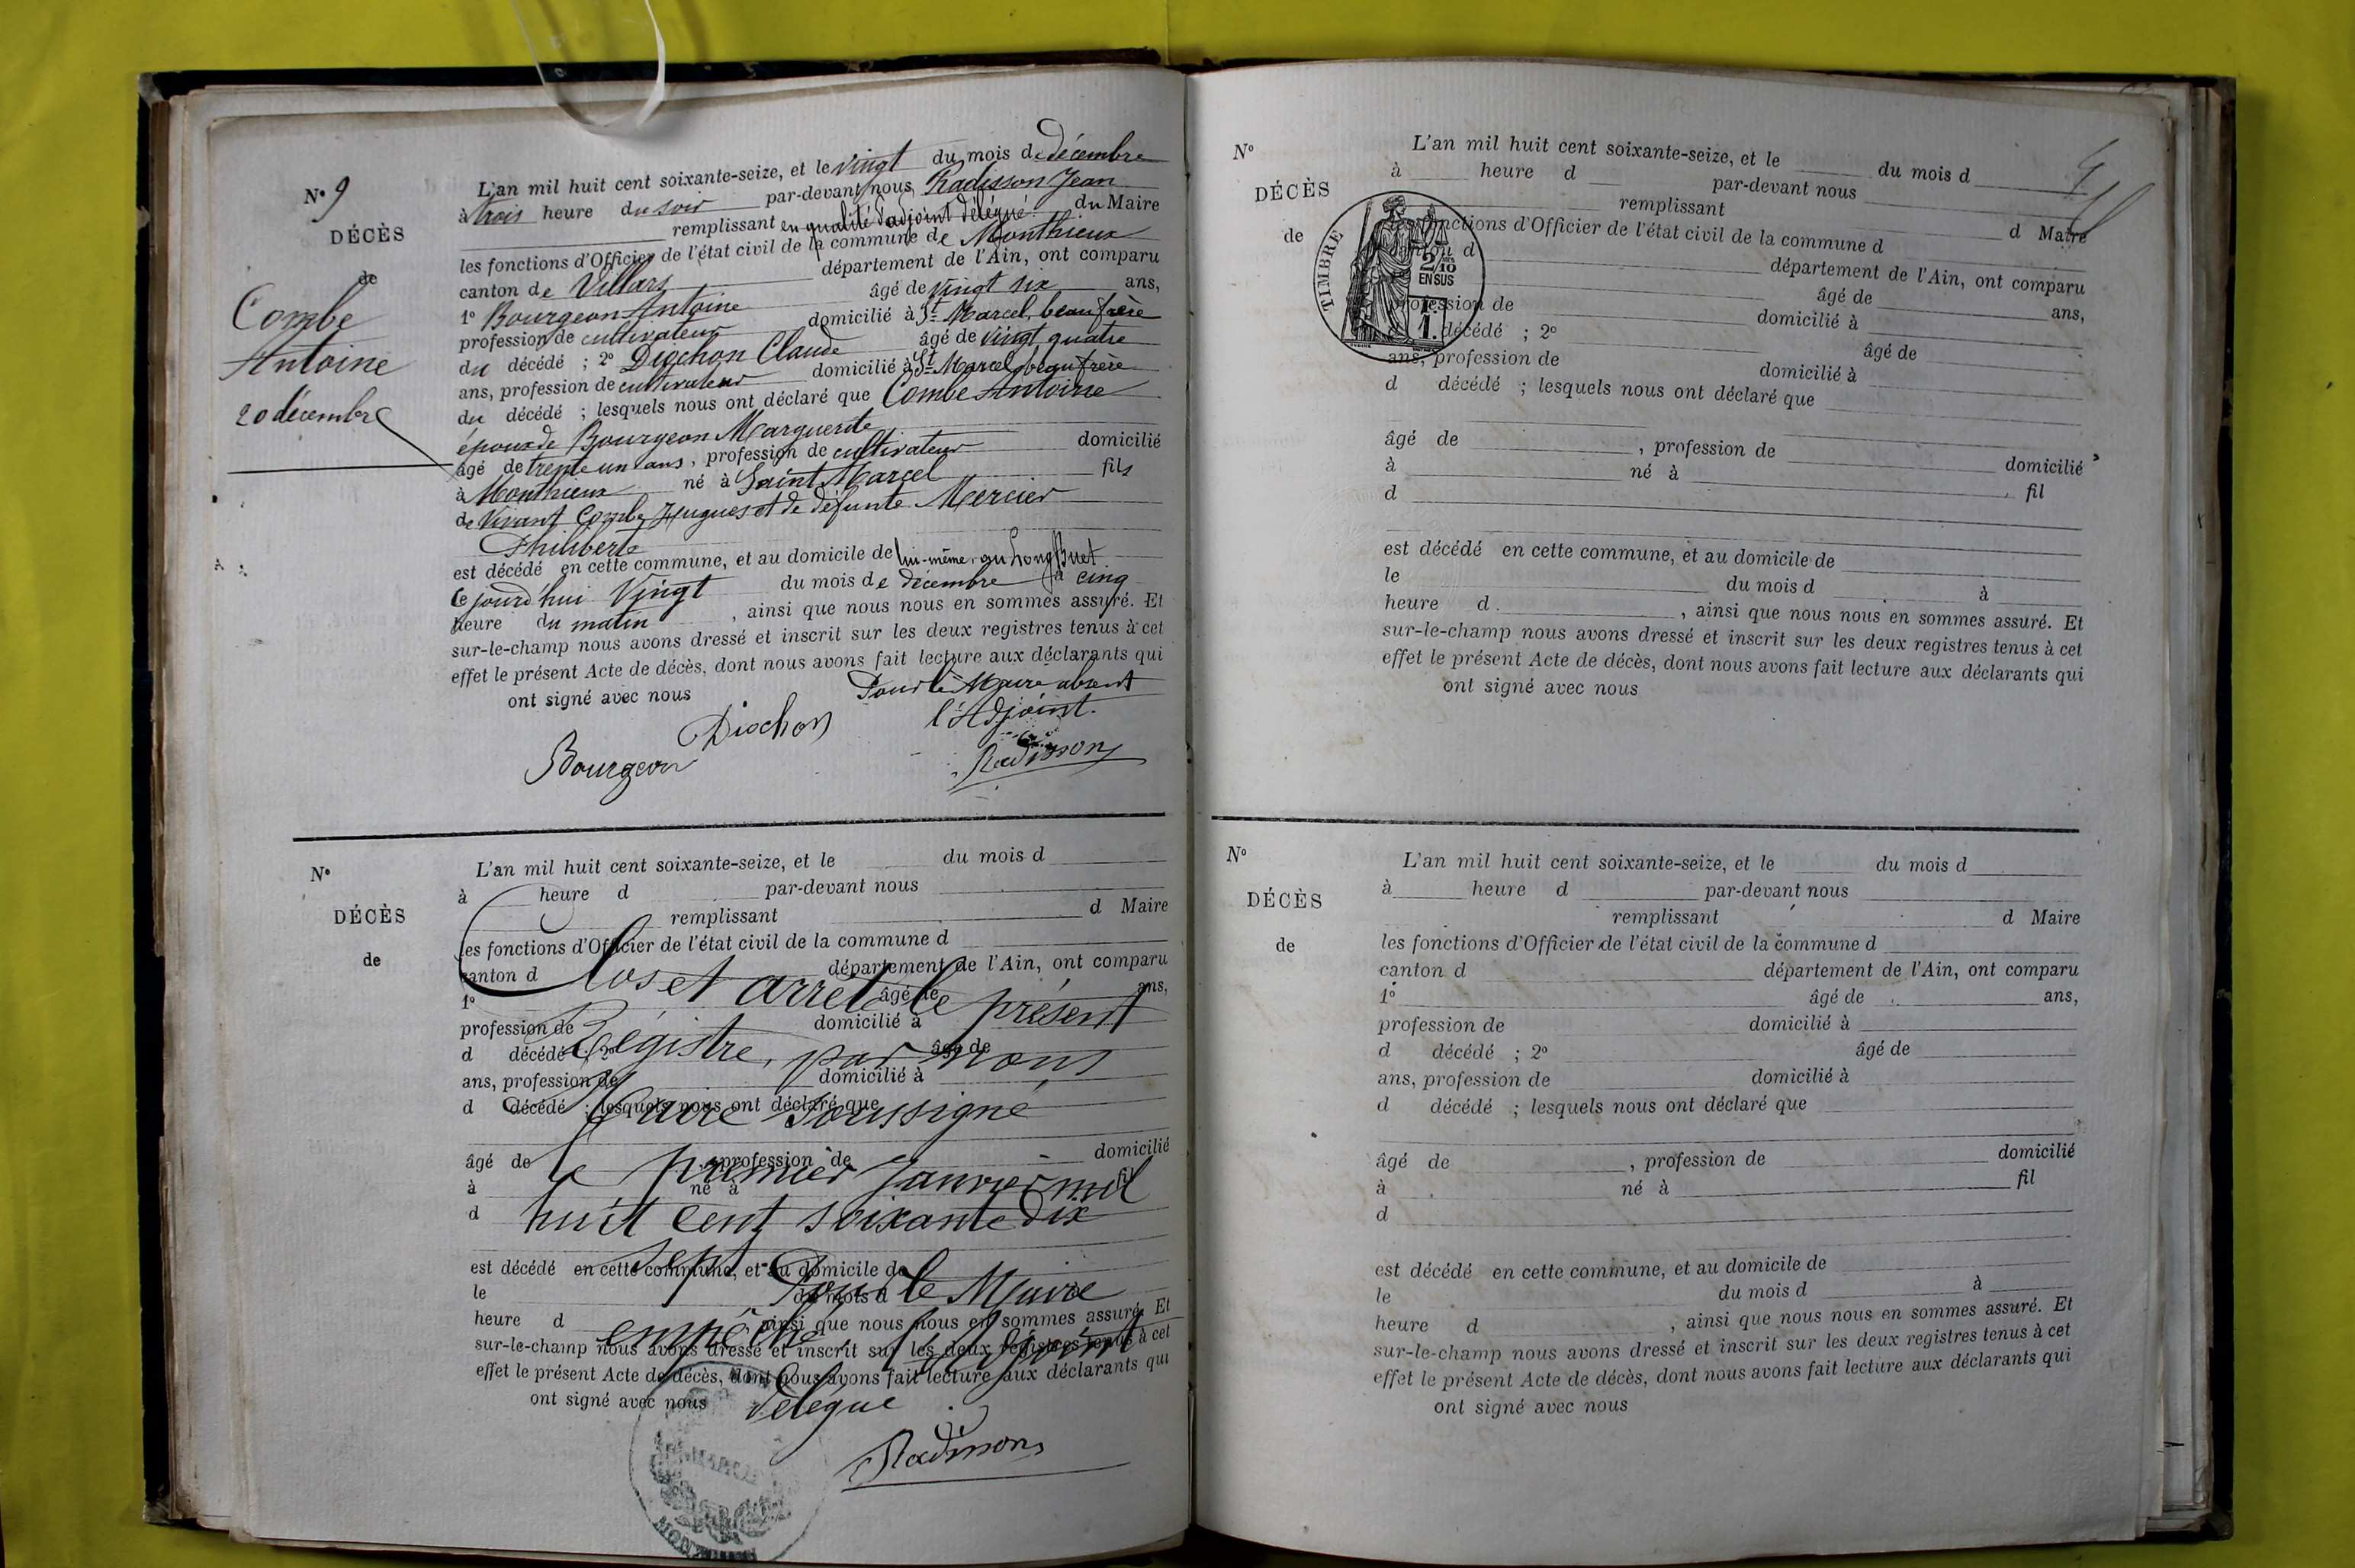 N° 9
DÉCÈS
de
Combe
Antoine
20 décembre
L'an mil huit cent soixante-seize, et le vingt du mois de décembre
à trois heure du soir par-devant nous Radisson Jean
remplissant en qualité d'adjoint délégué du Maire
les fonctions d'Officier de l'état civil de la commune de Monthieux
canton de Villars département de l'Ain, ont comparu
1° Bourgeon Antoine âgé de vingt six ans,
profession de cultivateur domicilié à St Marcel, beau frère
du décédé ; 2° Diochon Claude âgé de vingt quatre
ans, profession de cultivateur domicilié à St Marcel, beau frère
du décédé ; lesquels nous ont déclaré que Combe Antoine
époux de Bourgeon Marguerite
âgé de trente un ans, profession de cultivateur domicilié
à Monthieux né à Saint Marcel fils
de vivant Combe Hugues et de défunte Mercier
Philiberte
est décédé en cette commune, et au domicile de lui-même, au Long Buet
ce jourd'hui Vingt du mois de décembre à cinq
heure du matin, ainsi que nous nous en sommes assuré. Et
sur-le-champ nous avons dressé et inscrit sur les deux registres tenus à cet
effet le présent Acte de décès, dont nous avons fait lecture aux déclarants qui
ont signé avec nous Pour le Maire absent
l'Adjoint.
Diochon
Bourgeon Radisson
N°
DÉCÈS
de
L'an mil huit cent soixante-seize, et le du mois d
à heure d par-devant nous
remplissant d Maire
les fonctions d'Officier de l'état civil de la commune d
canton d département de l'Ain, ont comparu
Clos et arrêté le présent
1° âgé de ans,
profession de domicilié à
Régistre, par nous
d décédé ; 2° âgé de
ans, profession de domicilié à
d décédé ; lesquels nous ont déclaré que
Maire soussigné
âgé de , profession de domicilié
le premier Janvier mil
à né à fil
d
huit cent soixante dix
sept
est décédé en cette commune, et au domicile de
Pour le Maire
le du mois d à
heure d , ainsi que nous nous en sommes assuré. Et
empêché l'Adjoint
sur-le-champ nous avons dressé et inscrit sur les deux registres tenus à cet
effet le présent Acte de décès, dont nous avons fait lecture aux déclarants qui
ont signé avec nous
délégué
Radisson
N°
DÉCÈS
de
TIMBRE
2/10
EN SUS
L'an mil huit cent soixante-seize, et le du mois d
à heure d par-devant nous
remplissant d Maire
les fonctions d'Officier de l'état civil de la commune d
canton d département de l'Ain, ont comparu
âgé de ans,
profession de domicilié à
d décédé ; 2° âgé de
ans, profession de domicilié à
d décédé ; lesquels nous ont déclaré que
âgé de , profession de domicilié
à né à fil
d
est décédé en cette commune, et au domicile de
le du mois d à
heure d , ainsi que nous nous en sommes assuré. Et
sur-le-champ nous avons dressé et inscrit sur les deux registres tenus à cet
effet le présent Acte de décès, dont nous avons fait lecture aux déclarants qui
ont signé avec nous
N°
DÉCÈS
de
L'an mil huit cent soixante-seize, et le du mois d
à heure d par-devant nous
remplissant d Maire
les fonctions d'Officier de l'état civil de la commune d
canton d département de l'Ain, ont comparu
1° âgé de ans,
profession de domicilié à
d décédé ; 2° âgé de
ans, profession de domicilié à
d décédé ; lesquels nous ont déclaré que
âgé de , profession de domicilié
à né à fil
d
est décédé en cette commune, et au domicile de
le du mois d à
heure d , ainsi que nous nous en sommes assuré. Et
sur-le-champ nous avons dressé et inscrit sur les deux registres tenus à cet
effet le présent Acte de décès, dont nous avons fait lecture aux déclarants qui
ont signé avec nous